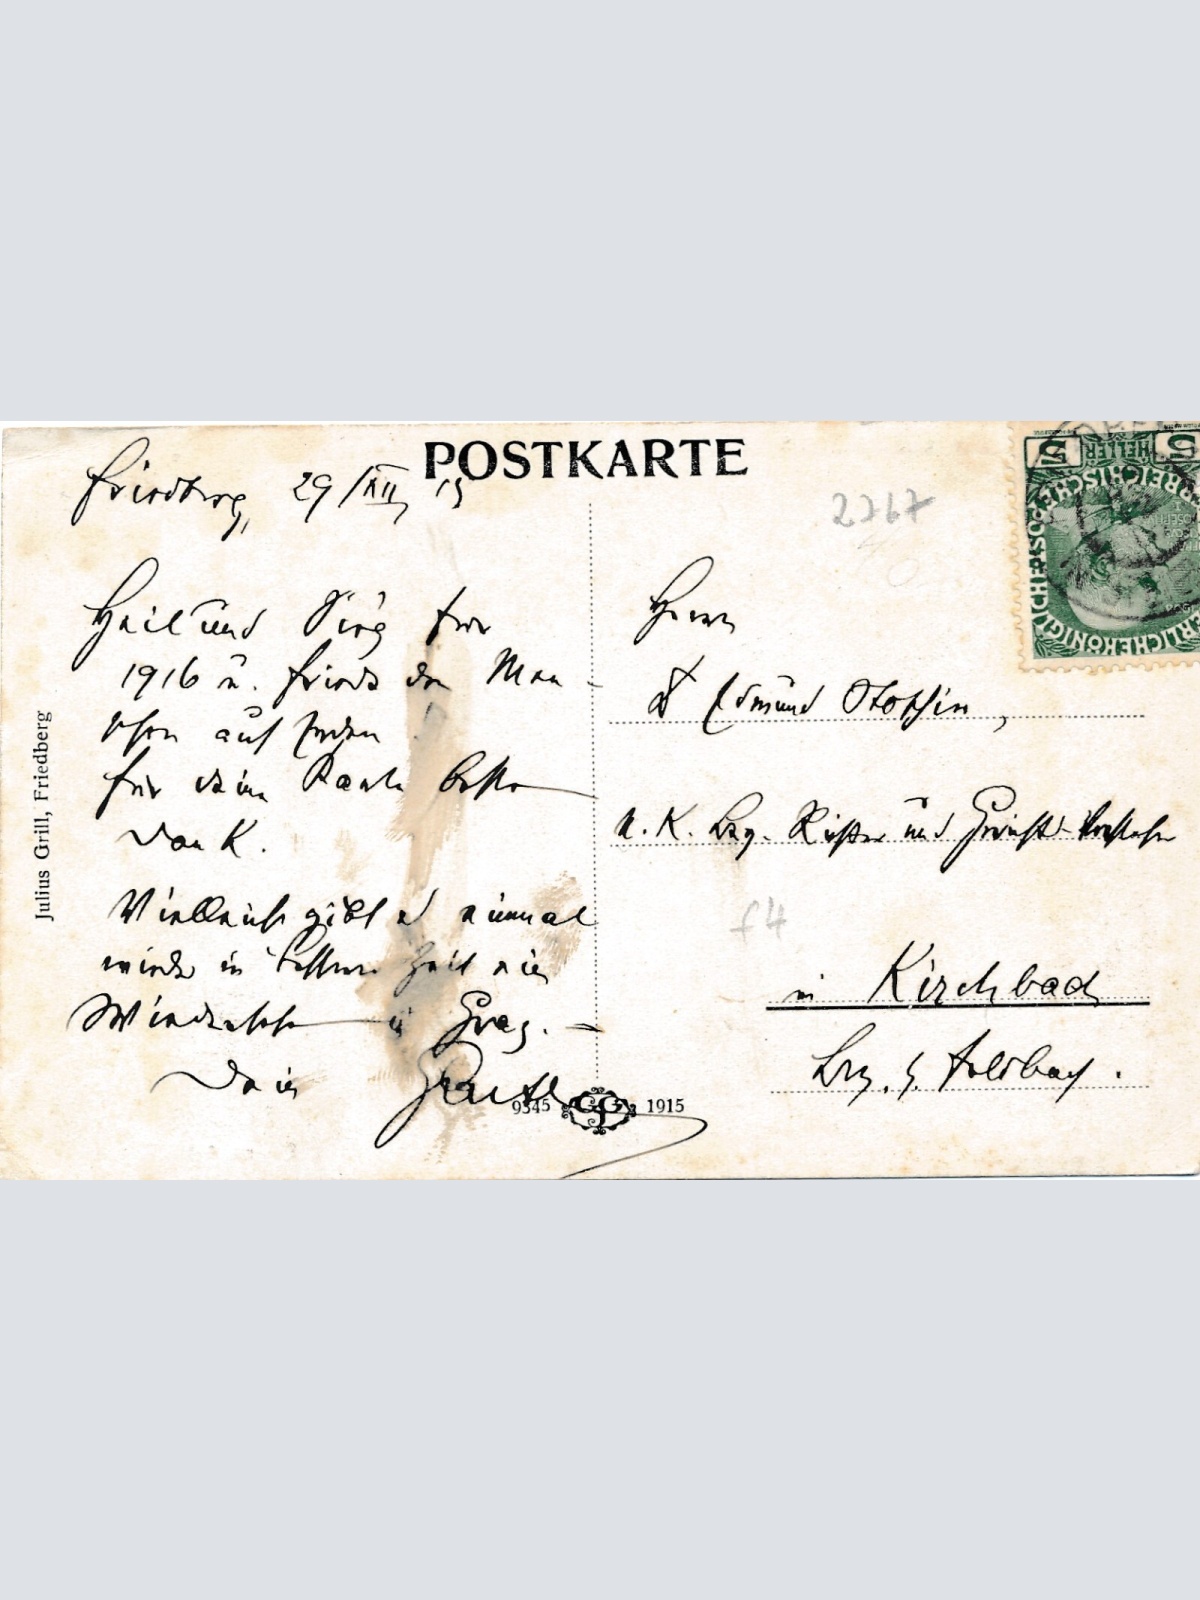 POSTKARTE
Friedberg, 29/XII, 15
Heil und Sieg für
1916 u. Friede den Men-
schen auf Erden
für deine Karte besten
Dank.
Vielleicht gibt es einmal
wieder in besserer Zeit ein
Wiedersehen in Graz. –
Dein
Julius Grill, Friedberg
9345 1915
2267
Herrn
Dr Edmund
k. K. Bez. Richter und Gerichts-Vorsteher
f4
in Kirchbach
Bez. Feldbach.
5 5
HELLER